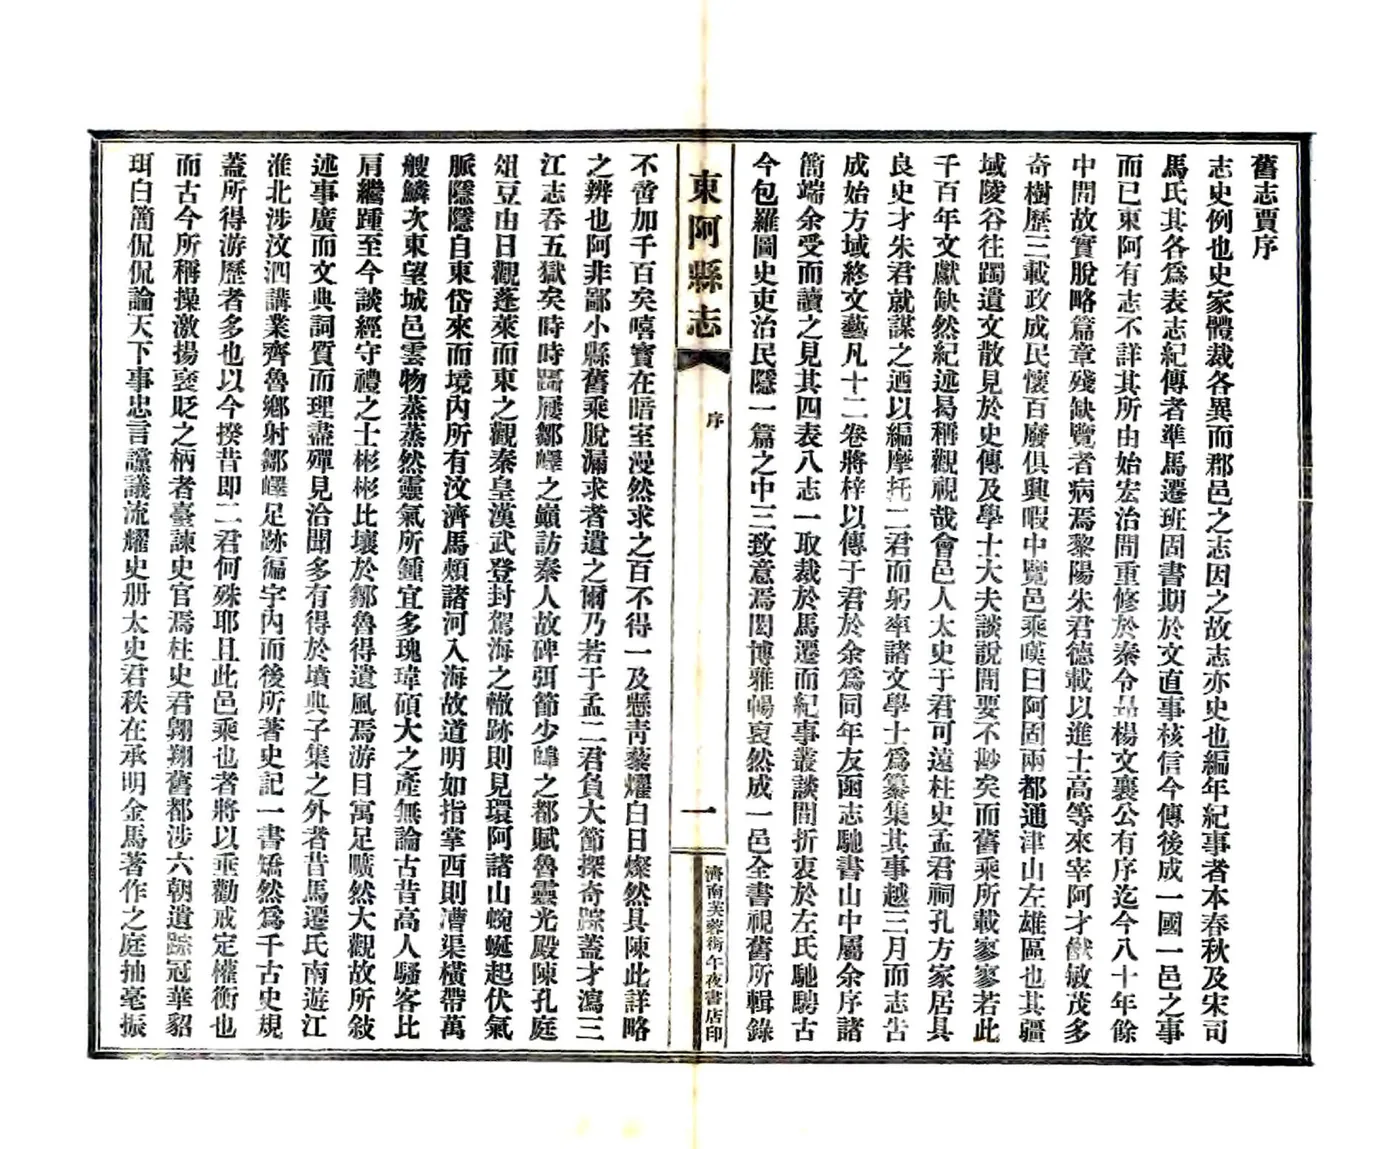 舊志賈序
志史例也史家體裁各異而郡邑之志因之故志亦史也編年紀事者本春秋及宋司
馬氏其各爲表志紀傳者準馬遷班固書期於文直事核信今傳後成一國一邑之事
而已東阿有志不詳其所由始宏治間重修於秦令昻楊文襄公有序迄今八十年餘
中間故實脫略篇章殘缺覽者病焉黎陽朱君德載以進士高等來宰阿才猷敏茂多
奇樹歷三載政成民懷百廢俱興暇中覽邑乘嘆曰阿固兩都通津山左雄區也其疆
域陵谷往躅遺文散見於史傳及學士大夫談說間要不尠矣而舊乘所載寥寥若此
千百年文獻缺然紀述曷稱觀視哉會邑人太史于君可遠柱史孟君祠孔方家居具
良史才朱君就謀之迺以編摩托二君而躬率諸文學士爲纂集其事越三月而志告
成始方域終文藝凡十二卷將梓以傳于君於余爲同年友函志馳書山中屬余序諸
簡端余受而讀之見其四表八志一取裁於馬遷而紀事叢談間折衷於左氏馳騁古
今包羅圖史吏治民隱一篇之中三致意焉閎博雅暢裒然成一邑全書視舊所輯錄
東阿縣志
序
一
濟南芙蓉街午夜書店印
不啻加千百矣嘻寶在暗室漫然求之百不得一及懸靑藜燿白日燦然具陳此詳略
之辨也阿非鄙小縣舊乘脫漏求者遺之爾乃若于孟二君負大節探奇踪蓋才瀉三
江志吞五獄矣時時躡屐鄒嶧之巔訪秦人故碑弭節少皥之都賦魯靈光殿陳孔庭
俎豆由日觀蓬萊而東之觀秦皇漢武登封駕海之轍跡則見環阿諸山蜿蜒起伏氣
脈隱隱自東岱來而境內所有汶濟馬頰諸河入海故道明如指掌西則漕渠橫帶萬
艘鱗次東望城邑雲物蒸蒸然靈氣所鍾宜多瑰瑋碩大之產無論古昔高人騷客比
肩繼踵至今談經守禮之士彬彬比壤於鄒魯得遺風焉游目寓足曠然大觀故所敍
述事廣而文典詞質而理盡殫見洽聞多有得於墳典子集之外者昔馬遷氏南遊江
淮北涉汶泗講業齊魯鄉射鄒嶧足跡徧宇內而後所著史記一書矯然爲千古史規
蓋所得游歷者多也以今揆昔即二君何殊耶且此邑乘也者將以垂勸戒定權衡也
而古今所稱操激揚褒貶之柄者臺諫史官焉柱史君翺翔舊都涉六朝遺踪冠華貂
珥白簡侃侃論天下事忠言讜議流耀史册太史君秩在承明金馬著作之庭抽毫振